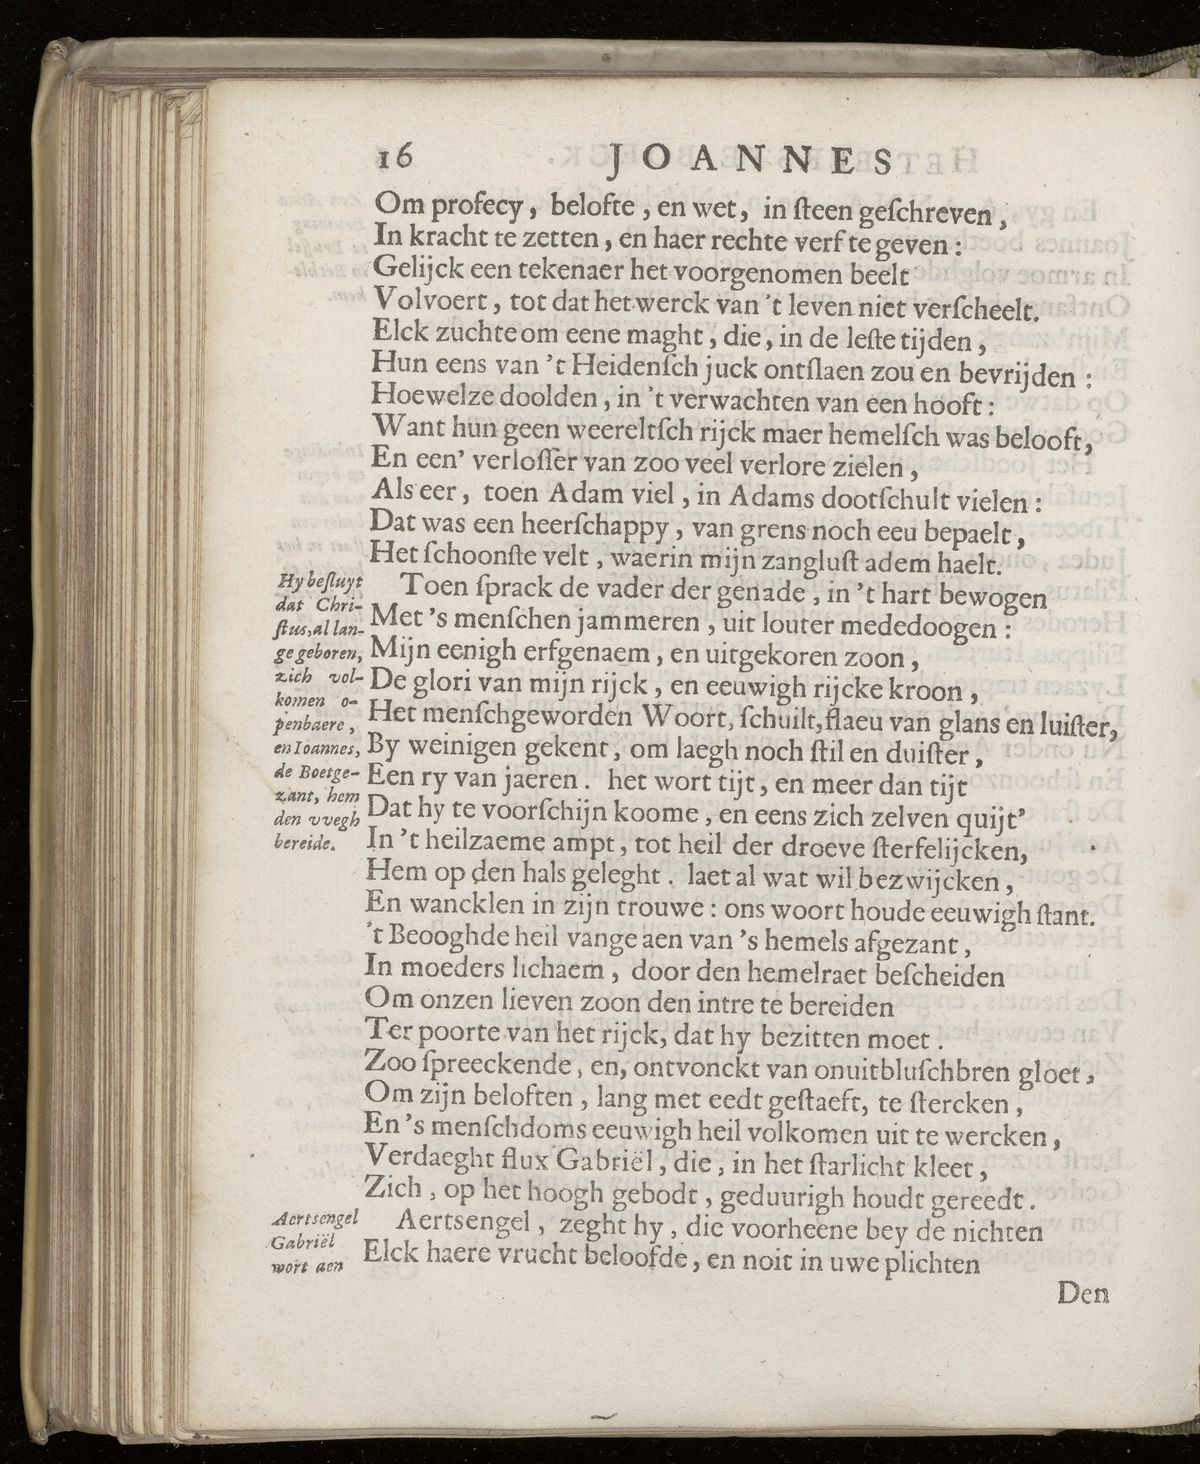 16 JOANNES
Om profecy, belofte, en wet, in ſteen geſchreven,
In kracht te zetten, en haer rechte verf te geven:
Gelijck een tekenaer het voorgenomen beelt
Volvoert, tot dat het werck van 't leven niet verſcheelt.
Elck zuchte om eene maght, die, in de leſte tijden,
Hun eens van 't Heidenſch juck ontſlaen zou en bevrijden:
Hoewelze doolden, in 't verwachten van een hooft:
Want hun geen weereltſch rijck maer hemelſch was belooft,
En een' verloſſer van zoo veel verlore zielen,
Als eer, toen Adam viel, in Adams dootſchult vielen:
Dat was een heerſchappy, van grens noch eeu bepaelt,
Het ſchoonſte velt, waerin mijn zangluſt adem haelt.
Toen ſprack de vader der genade, in 't hart bewogen
Met 's menſchen jammeren, uit louter mededoogen:
Mijn eenigh erfgenaem, en uitgekoren zoon,
De glori van mijn rijck, en eeuwigh rijcke kroon,
Het menſchgeworden Woort, ſchuilt, flaeu van glans en luiſter,
By weinigen gekent, om laegh noch ſtil en duiſter,
Een ry van jaeren. het wort tijt, en meer dan tijt
Dat hy te voorſchijn koome, en eens zich zelven quijt'
In 't heilzaeme ampt, tot heil der droeve ſterfelijcken,
Hem op den hals geleght. laet al wat wil bezwijcken,
En wancklen in zijn trouwe: ons woort houde eeuwigh ſtant.
't Beooghde heil vange aen van 's hemels afgezant,
In moeders lichaem, door den hemelraet beſcheiden
Om onzen lieven zoon den intre te bereiden
Ter poorte van het rijck, dat hy bezitten moet.
Zoo ſpreeckende, en, ontvonckt van onuitbluſchbren gloet,
Om zijn beloften, lang met eedt geſtaeft, te ſtercken,
En 's menſchdoms eeuwigh heil volkomen uit te wercken,
Verdaeght flux Gabriël, die, in het ſtarlicht kleet,
Zich, op het hoogh gebodt, geduurigh houdt gereedt.
Aertsengel, zeght hy, die voorheene bey de nichten
Elck haere vrucht beloofde, en noit in uwe plichten
Den
Hy beſluyt
dat Chri-
ſtus, al lan-
ge geboren,
zich vol-
komen o-
penbaere,
en Ioannes,
de Boetge-
zant, hem
den vvegh
bereide.
Aertsengel
Gabriël
wort aen